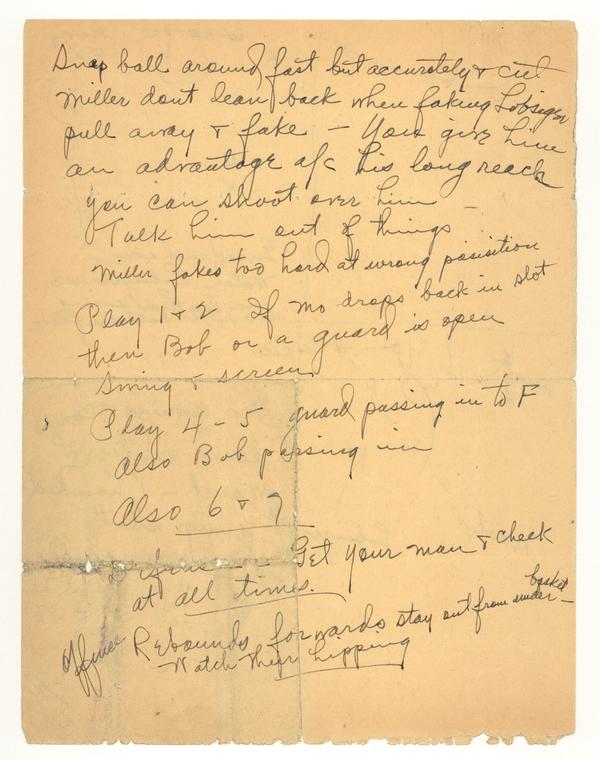 Snap ball around fast but accurately & cut
Miller dont lean back when faking
pull away & fake - You give him
an advantage a/c his long reach
you can shoot over him -
Talk him out of things
Miller fakes too hard at wrong posistion
Play 1 & 2 If Mo drops back in slot
then Bob or a guard is open
Swing & screen
Play 4 - 5 guard passing in to F
also Bob passing in
Also 6 & 7
Defense - - Get your man & check
at all times.
basket
Offense Rebounds forwards stay out from under -
Watch their hipping